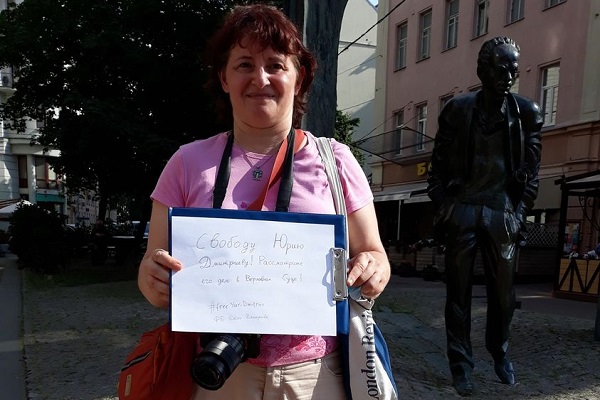 Свободу Юрию
Дмитриеву! Рассмотрите
его дело в Верховном Суде!
#freeYuriDmitriev
London Rev